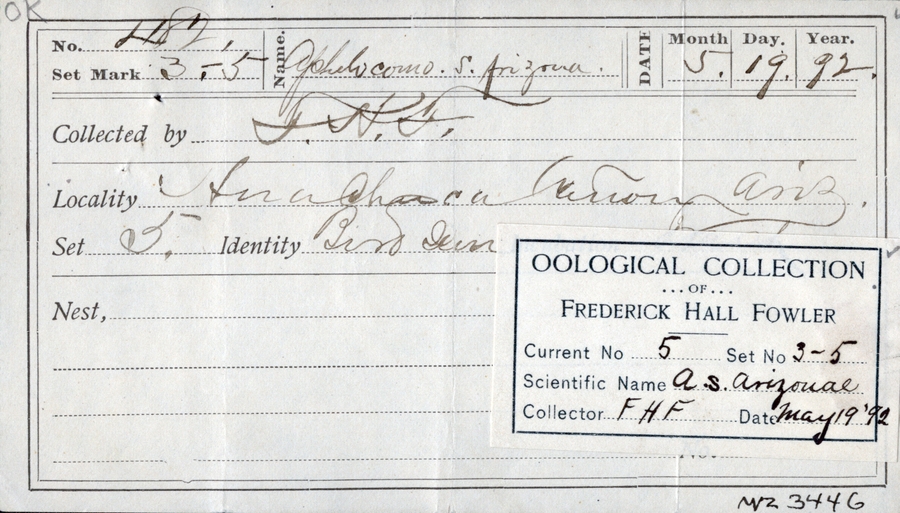 OK
No. 482. Name. Aphelocoma. S. Arizona. DATE Month Day. Year.
Set Mark 3-5 5. 19. 92.
Collected by F. H. F.
Locality Cañon, Ariz.
Set 5. Identity Bird seen
Nest,
OOLOGICAL COLLECTION
...OF...
FREDERICK HALL FOWLER
Current No 5 Set No 3-5
Scientific Name A. s. arizonae
Collector F H F Date May 19 '92
MVZ 3446